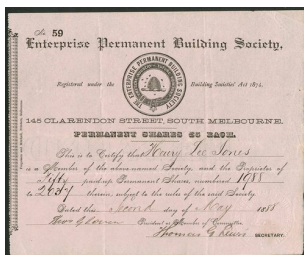 No. 59
Enterprise Permanent Building Society,
Registered under the Building Societies' Act 1874.
THE ENTERPRISE PERMANENT BUILDING SOCIETY
145 CLARENDON STREET, SOUTH MELBOURNE.
PERMANENT SHARES £5 EACH.
This is to Certify that Henry Lee Jones
is a Member of the above-named Society, and the Proprietor of
Fifty paid-up Permanent Shares, numbered 1988
to 2037 therein, subject to the rules of the said Society.
Dated this Second day of May 1888
President or Member of Committee
Thomas G. SECRETARY.